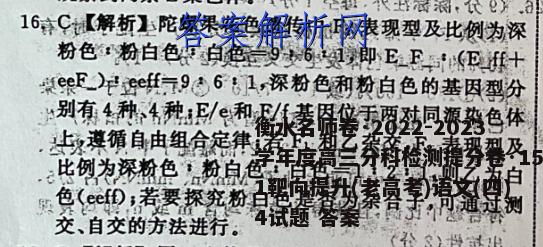 16. C【解析】陀
表现型及比例为深
粉色：粉白色：白色＝9：6：1，即E_F_：(E_ff＋
eeF_)：eeff＝9：6：1，深粉色和粉白色的基因型分
别有4种、4种；E/e和F/f基因位于两对同源染色体
上，遵循自由组合定律
比例为深粉色：粉白色：白色＝1：2：1，则乙为白
色(eeff)；若要探究粉白色是否为杂合子，可通过测
交、自交的方法进行。
答案解析网
衡水名师卷·2022-2023
学年度高三分科检测提分卷·15
1靶向提升(老高考)语文(四)
4试题 答案